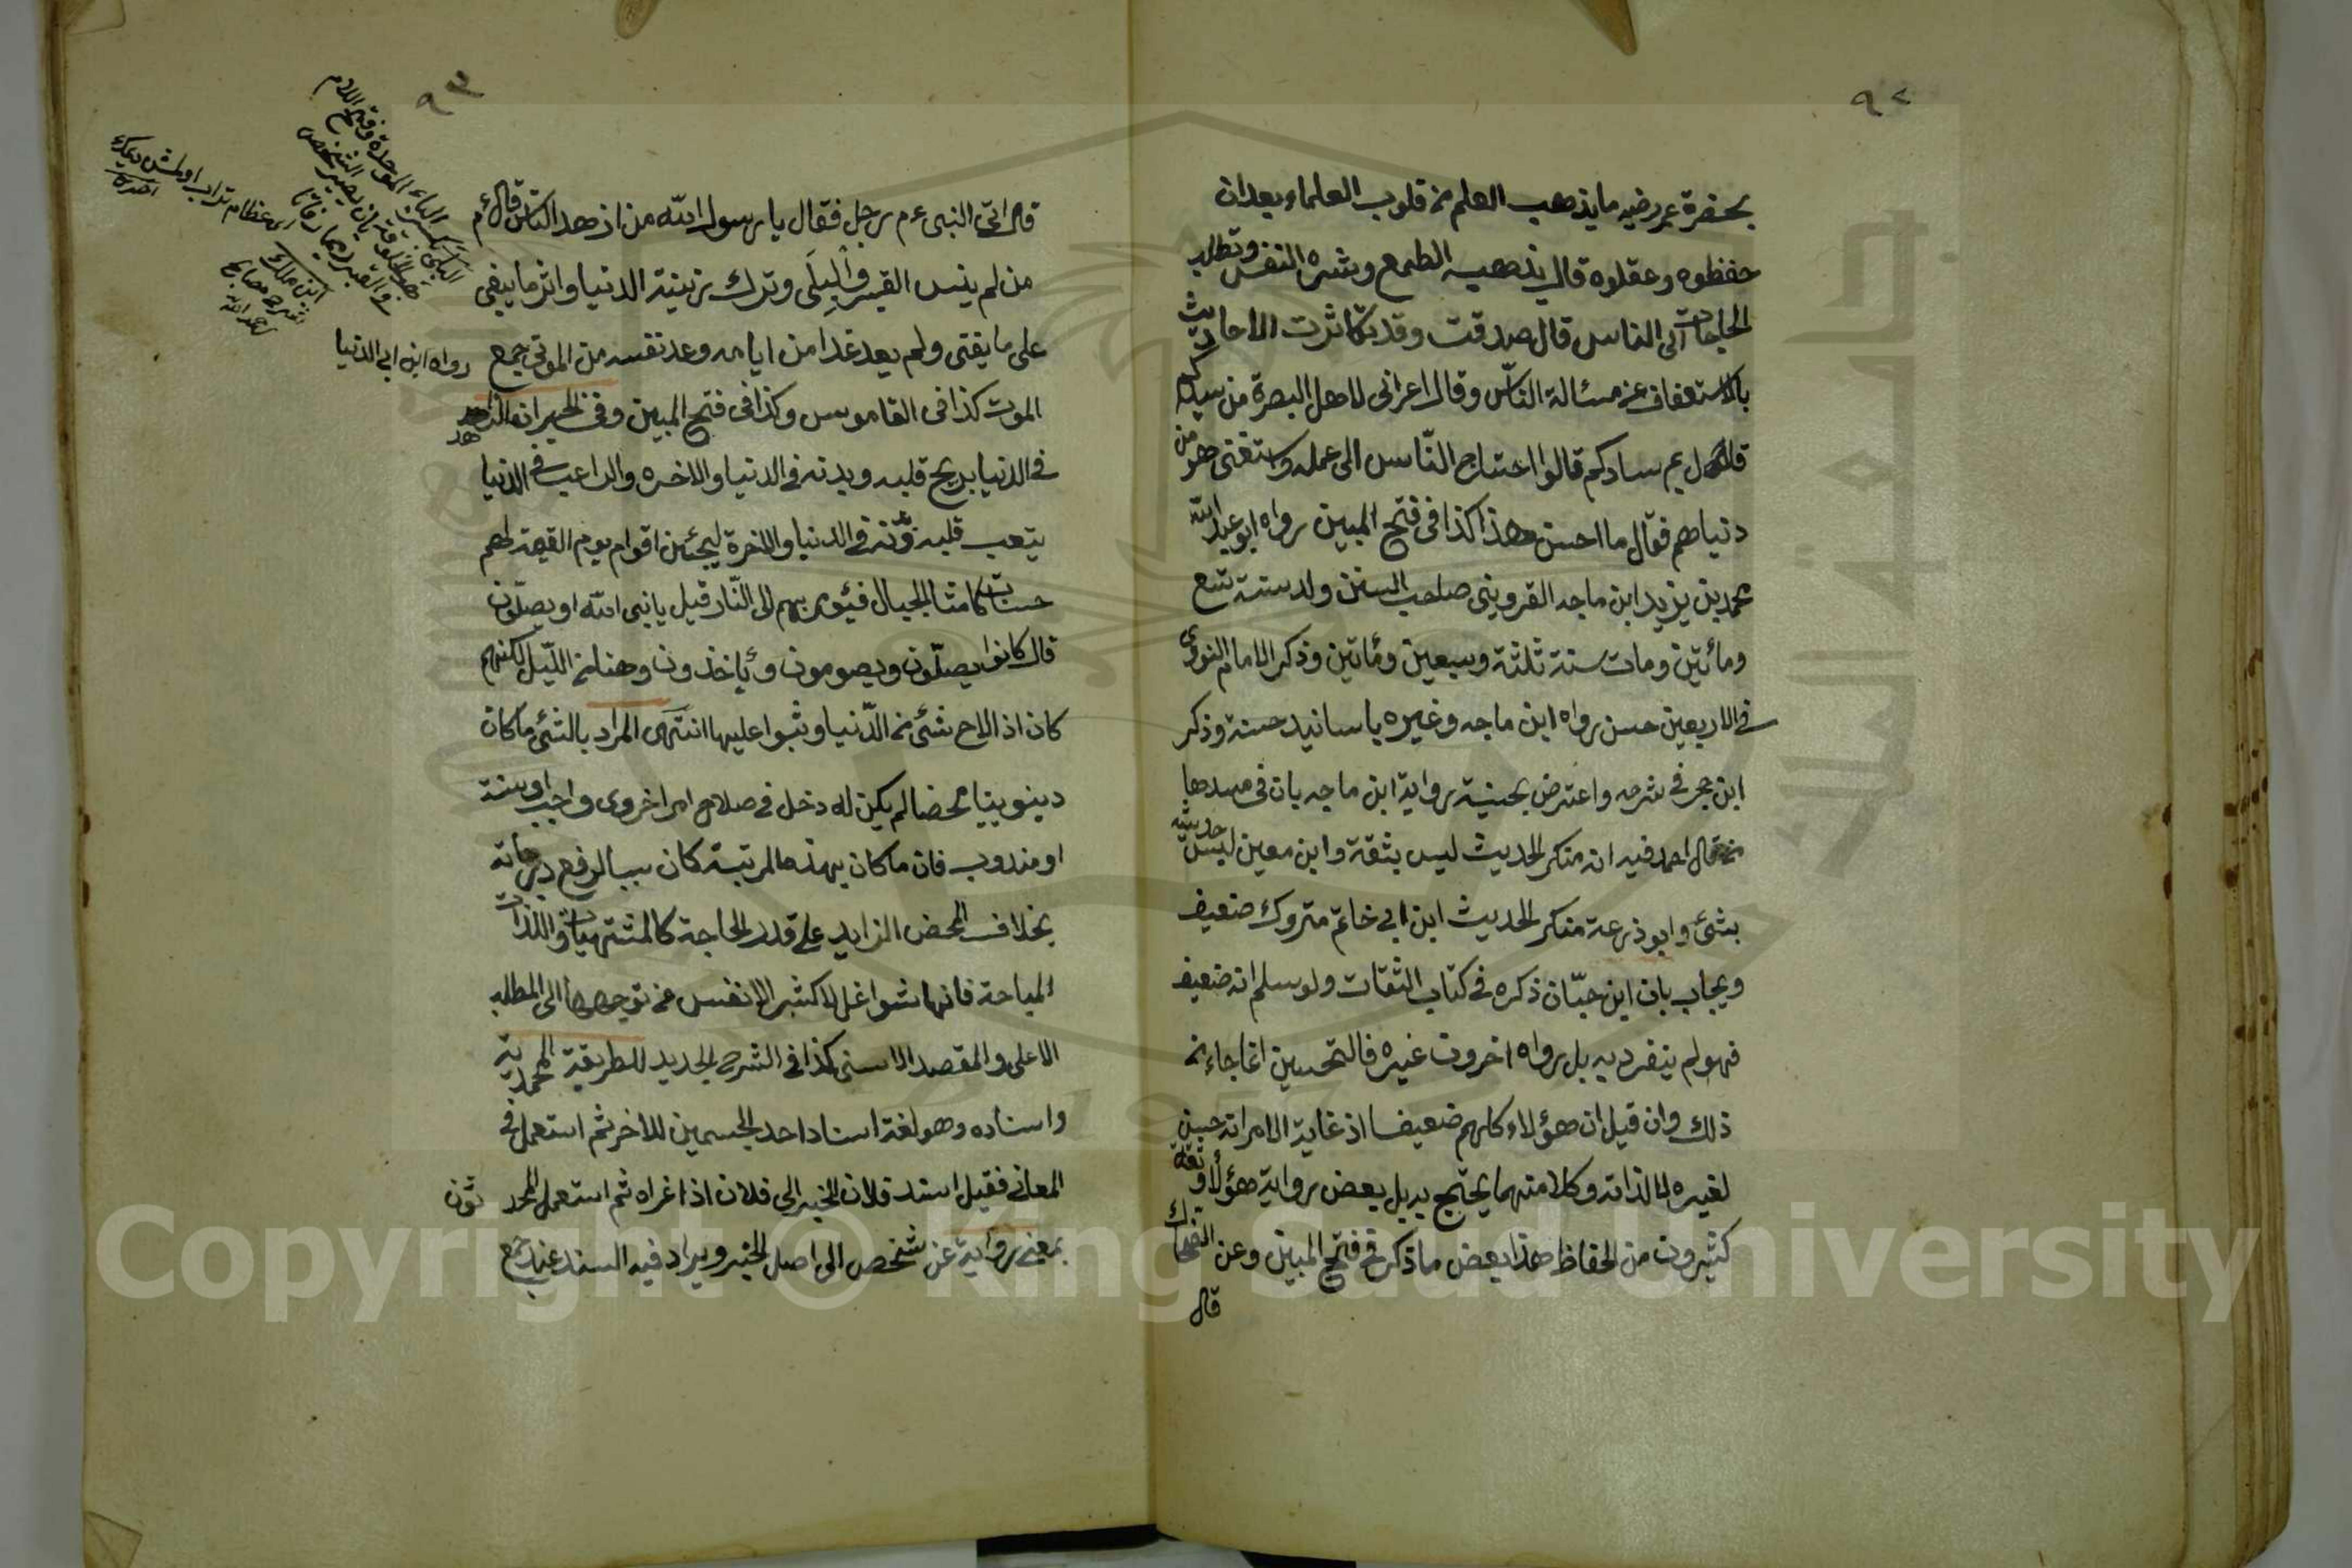 ٩٢
بحضرة عمر رضيه ما يذهب العلم من قلوب العلماء بعد ان
حفظوه وعقلوه قال يذهبه الطمع وشره النفس وتطلب
الحاجات الى الناس قال صدقت وقد تكاثرت الاحاديث
بالاستعفاف عن مسئالة الناس وقال اعرابى لاهل البصرة من سيدكم
قالوا بم سادكم قالوا احتاج الناس الى عمله واستغنى هو من
دنياهم فقال ما احسن هذا كذا فى فتح المبين رواه ابو عبد الله
محمد بن يزيد ابن ماجه القزوينى صاحب السنن ولد سنة تسع
ومأتين ومات سنة ثلثة وسبعين ومأتين وذكر الامام النووى
فى الاربعين حسن رواه ابن ماجه وغيره باسانيد حسنة وذكر
ابن حجر فى شرحه واعترض بحسنية رواية ابن ماجه بان فى سندها
من قال احمد فيه انه منكر الحديث ليس بثقة وابن معين ليس حديثه
بشئ وابو ذرعة منكر الحديث ابن ابى خاتم متروك ضعيف
ويجاب بان ابن حبّان ذكره فى كتاب الثقات ولو سلم انه ضعيف
فهو لم ينفرد به بل رواه اخرون غيره فالتحسين انما جاء من
ذلك وان قيل ان هؤلاء كلهم ضعيفا اذ غاية الامر انه حسن
لغيره لا لذاته وكلا منهما يحتج به بل بعض رواية هؤلاء وثقه
كثيرون من الحفاظ هذا بعض ما ذكر فى فتح المبين وعن الضحاك
قال
٩٣
قال اتى النبى ءم رجل فقال يا رسول الله من ازهد الناس قال ءم
من لم ينس القبر والبِلَى وترك زينة الدنيا واثر ما يبقى
على ما يفنى ولم يعد غدا من ايامه وعد نفسه من الموتى جمع
رواه ابن ابى الدنيا
الموت كذا فى القاموس وكذا فى فتح المبين وفى الخبر ان الزاهد
فى الدنيا يريح قلبه وبدنه فى الدنيا والاخره والراغب فى الدنيا
يتعب قلبه وبدنه فى الدنيا والاخرة ليجئين اقوام يوم القيمة لهم
حسنات كامثال الجبال فيؤمر بهم الى النّار قيل يا نبى الله او يصلّون
قال كانوا يصلّون ويصومون ويأخذون وهنا من اللّيل لكنهم
كان اذا لاح شئ من الدّنيا وثبوا عليها انتهى المراد بالشئ ما كان
دينويا محضا لم يكن له دخل فى صلاح امر اخروى واجب او سنة
او مندوب فان ما كان بهذه المرتبة كان سببا لرفع درجاته
بخلاف المحض الزايد على قدر الحاجة كالمشتهيات واللذات
المباحة فانها شواغل لاكثر الانفس عن توجهها الى المطلب
الاعلى والمقصد الاسنى كذا فى الشرح الجديد للطريقة المحمدية
واسناده وهو لغة اسناد احد الجسمين للاخر ثم استعمل فى
المعانى فقيل اسند فلان الخبر الى فلان اذا عزاه ثم استعمل المحد ثون
بمعنى رواية عن شخص الى اصل الخبر ويراد فيه السند عند جمع
البلى بكسر الباء الموحدة وفتح اللام
فى القبر رميما رفاتا
ابن ملك
Copyright © King Saud University